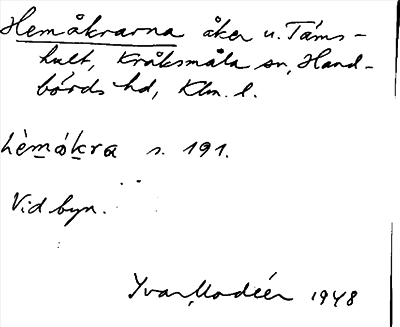 Hemåkrarna åker u. Täms-
hult, Kråksmåla sn, Hand-
börds hd, Klm. l.
hèmåkra s. 191.
Vid byn.
Yvar Modéer 1948